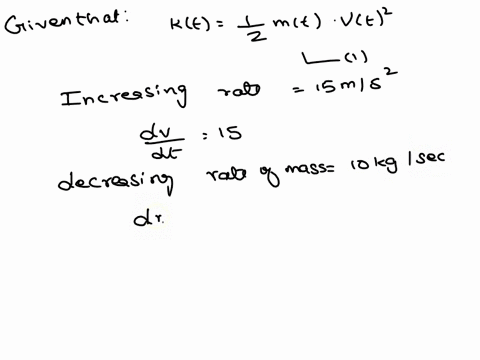 Given that: K(t) = 1/2 m(t) · V(t)²
(1)
Increasing rate = 15 m/s²
dv/dt = 15
decreasing rate of mass = 10 kg / sec